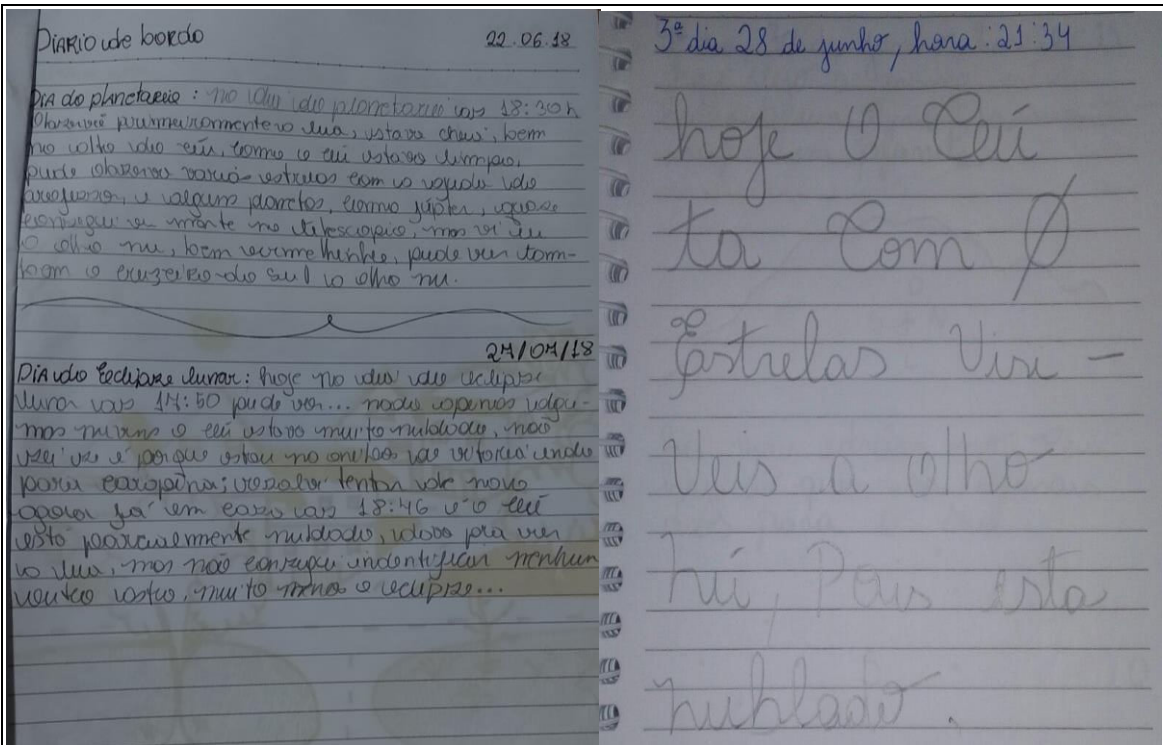 DIARIO de bordo 22.06.18
DIA do planetario : no dia do planetario as 18:30h
Observei primeiramente a lua, estava cheia, bem
no alto do céu, como o céu estava limpo,
pude observar varias estrelas com a ajuda do
professor, e alguns planetas, como júpiter, quase
consegui ver marte no telescopio, mas vi eu
a olho nu, bem vermelhinho, pude ver tam-
bem o cruzeiro do sul a olho nu.
27/07/18
DIA do Eclipse lunar: hoje no dia do eclipse
lunar as 17:50 pude ver... nada apenas algu-
mas nuvens o céu estava muito nublado, não
sei se é porque estou no onibus
para carapina; resolvi tentar de novo
agora já em casa as 18:46 e o céu
está parcialmente nublado, dava pra ver
a lua, mas não consegui indentificar nenhum
outro astro, muito menos o eclipse...
3ª dia 28 de junho, hora: 21:34
hoje O Céu
ta Com Ø
Estrelas Visi-
Veis a olho
nú, Pois esta
nublado.